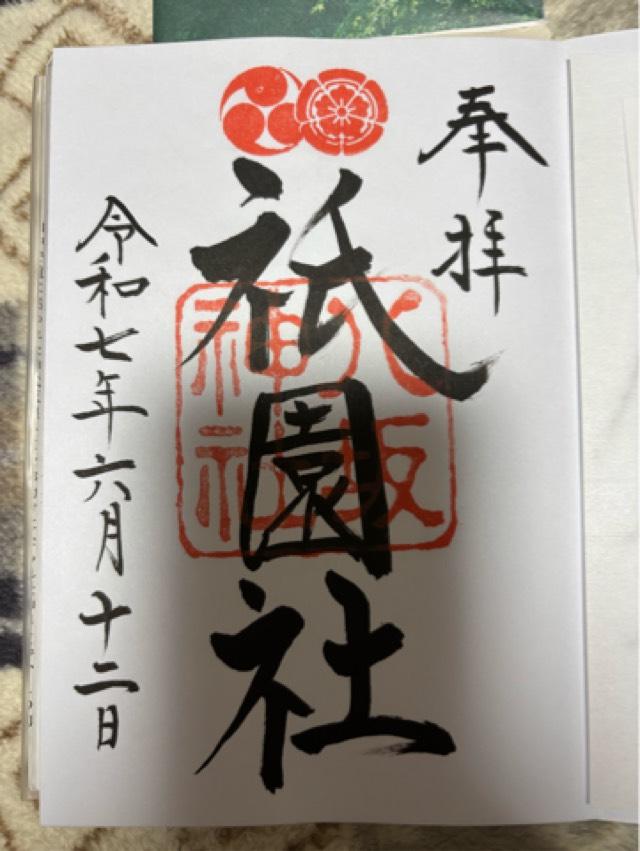 奉拝
祇園社
八坂
神社
令和七年六月十二日